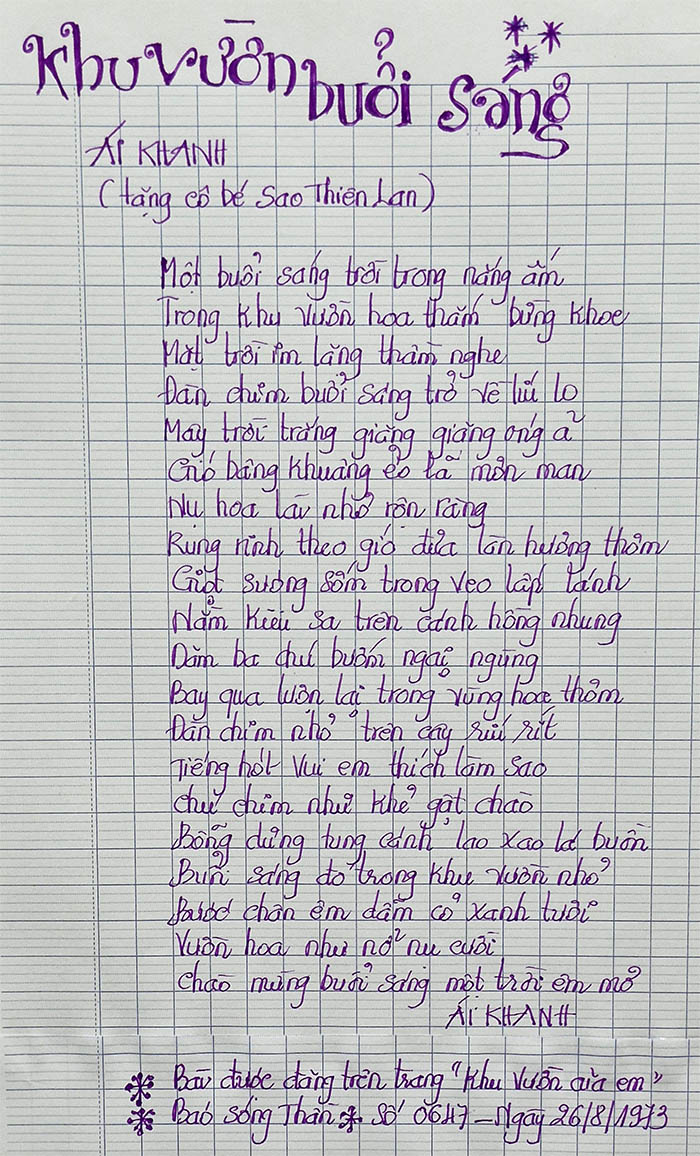 Khu vườn buổi sáng
ÁI KHANH
(tặng cô bé Sao Thiên Lan)
Một buổi sáng trời trong nắng ấm
Trong khu vườn hoa thắm bừng khoe
Mặt trời im lặng thầm nghe
Đàn chim buổi sáng trở về líu lo
Mây trời trắng giăng giăng óng ả
Gió bâng khuâng ẻo lả mơn man
Nụ hoa lài nhỏ rộn ràng
Rung rinh theo gió đưa làn hương thơm
Giọt sương sớm trong veo lấp lánh
Nằm kiêu sa trên cánh hồng nhung
Dăm ba chú bướm ngại ngùng
Bay qua lượn lại trong vùng hoa thơm
Đàn chim nhỏ trên cây ríu rít
Tiếng hót vui em thích làm sao
Chú chim như khẻ gật chào
Bỗng dưng tung cánh lao xao lá buồn
Buổi sáng đó trong khu vườn nhỏ
Bước chân em dẫm cỏ xanh tươi
Vườn hoa như nở nụ cười
Chào mừng buổi sáng một trời êm mơ
ÁI KHANH
Bài được đăng trên trang "Khu vườn của em"
Báo Sóng Thần Số 0647 - Ngày 26/8/1973